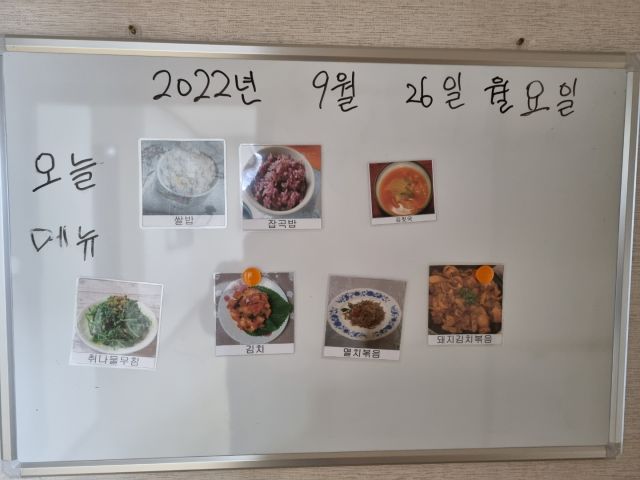 2022년 9월 26일 월요일
오늘
메뉴
쌀밥
잡곡밥
취나물무침
김치
멸치볶음
돼지김치볶음